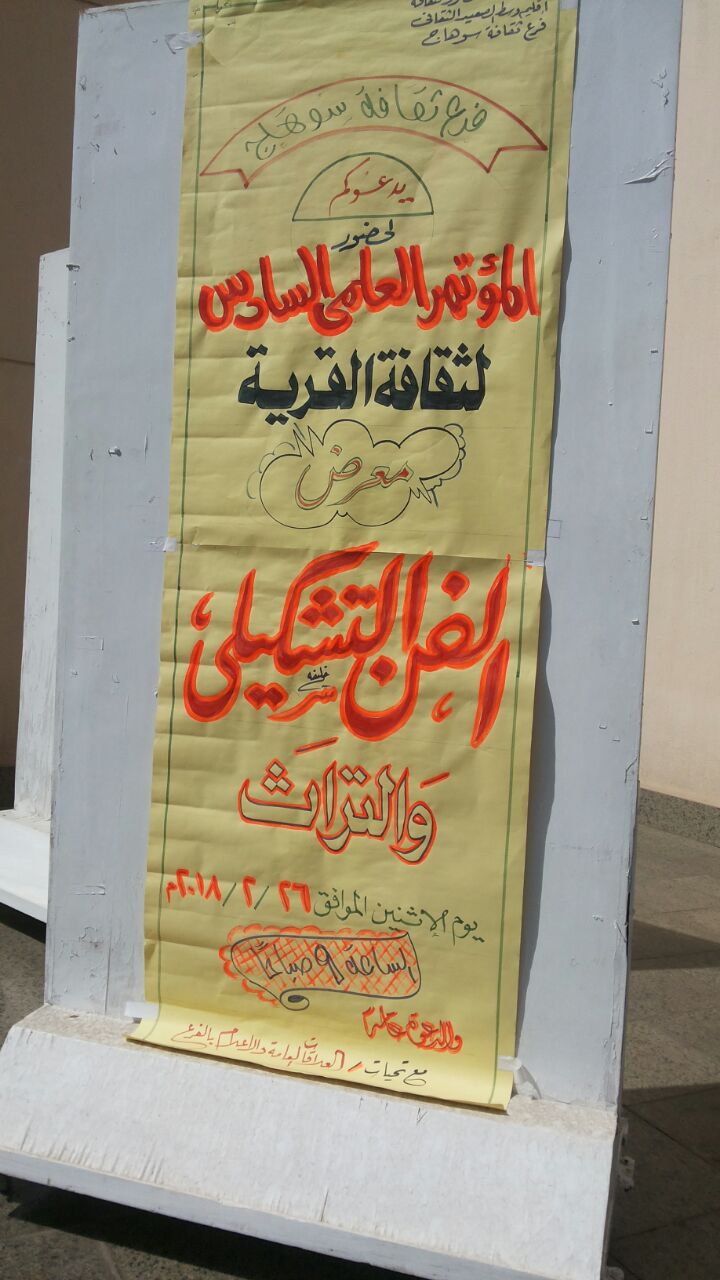 اقليم وسط الصعيد الثقافى
فرع ثقافة سوهاج
فرع ثقافة سوهاج
يدعوكم
لحضور
المؤتمر العلمى السادس
لثقافة القرية
معرض
الفن التشكيلى
خليفه
والتراث
يوم الإثنين الموافق ٢٦ / ٢ / ٢٠١٨م
الساعة ٩ صباحًا
والدعوة عامة
مع تحيات / العلاقات العامة والاعلام بالفرع